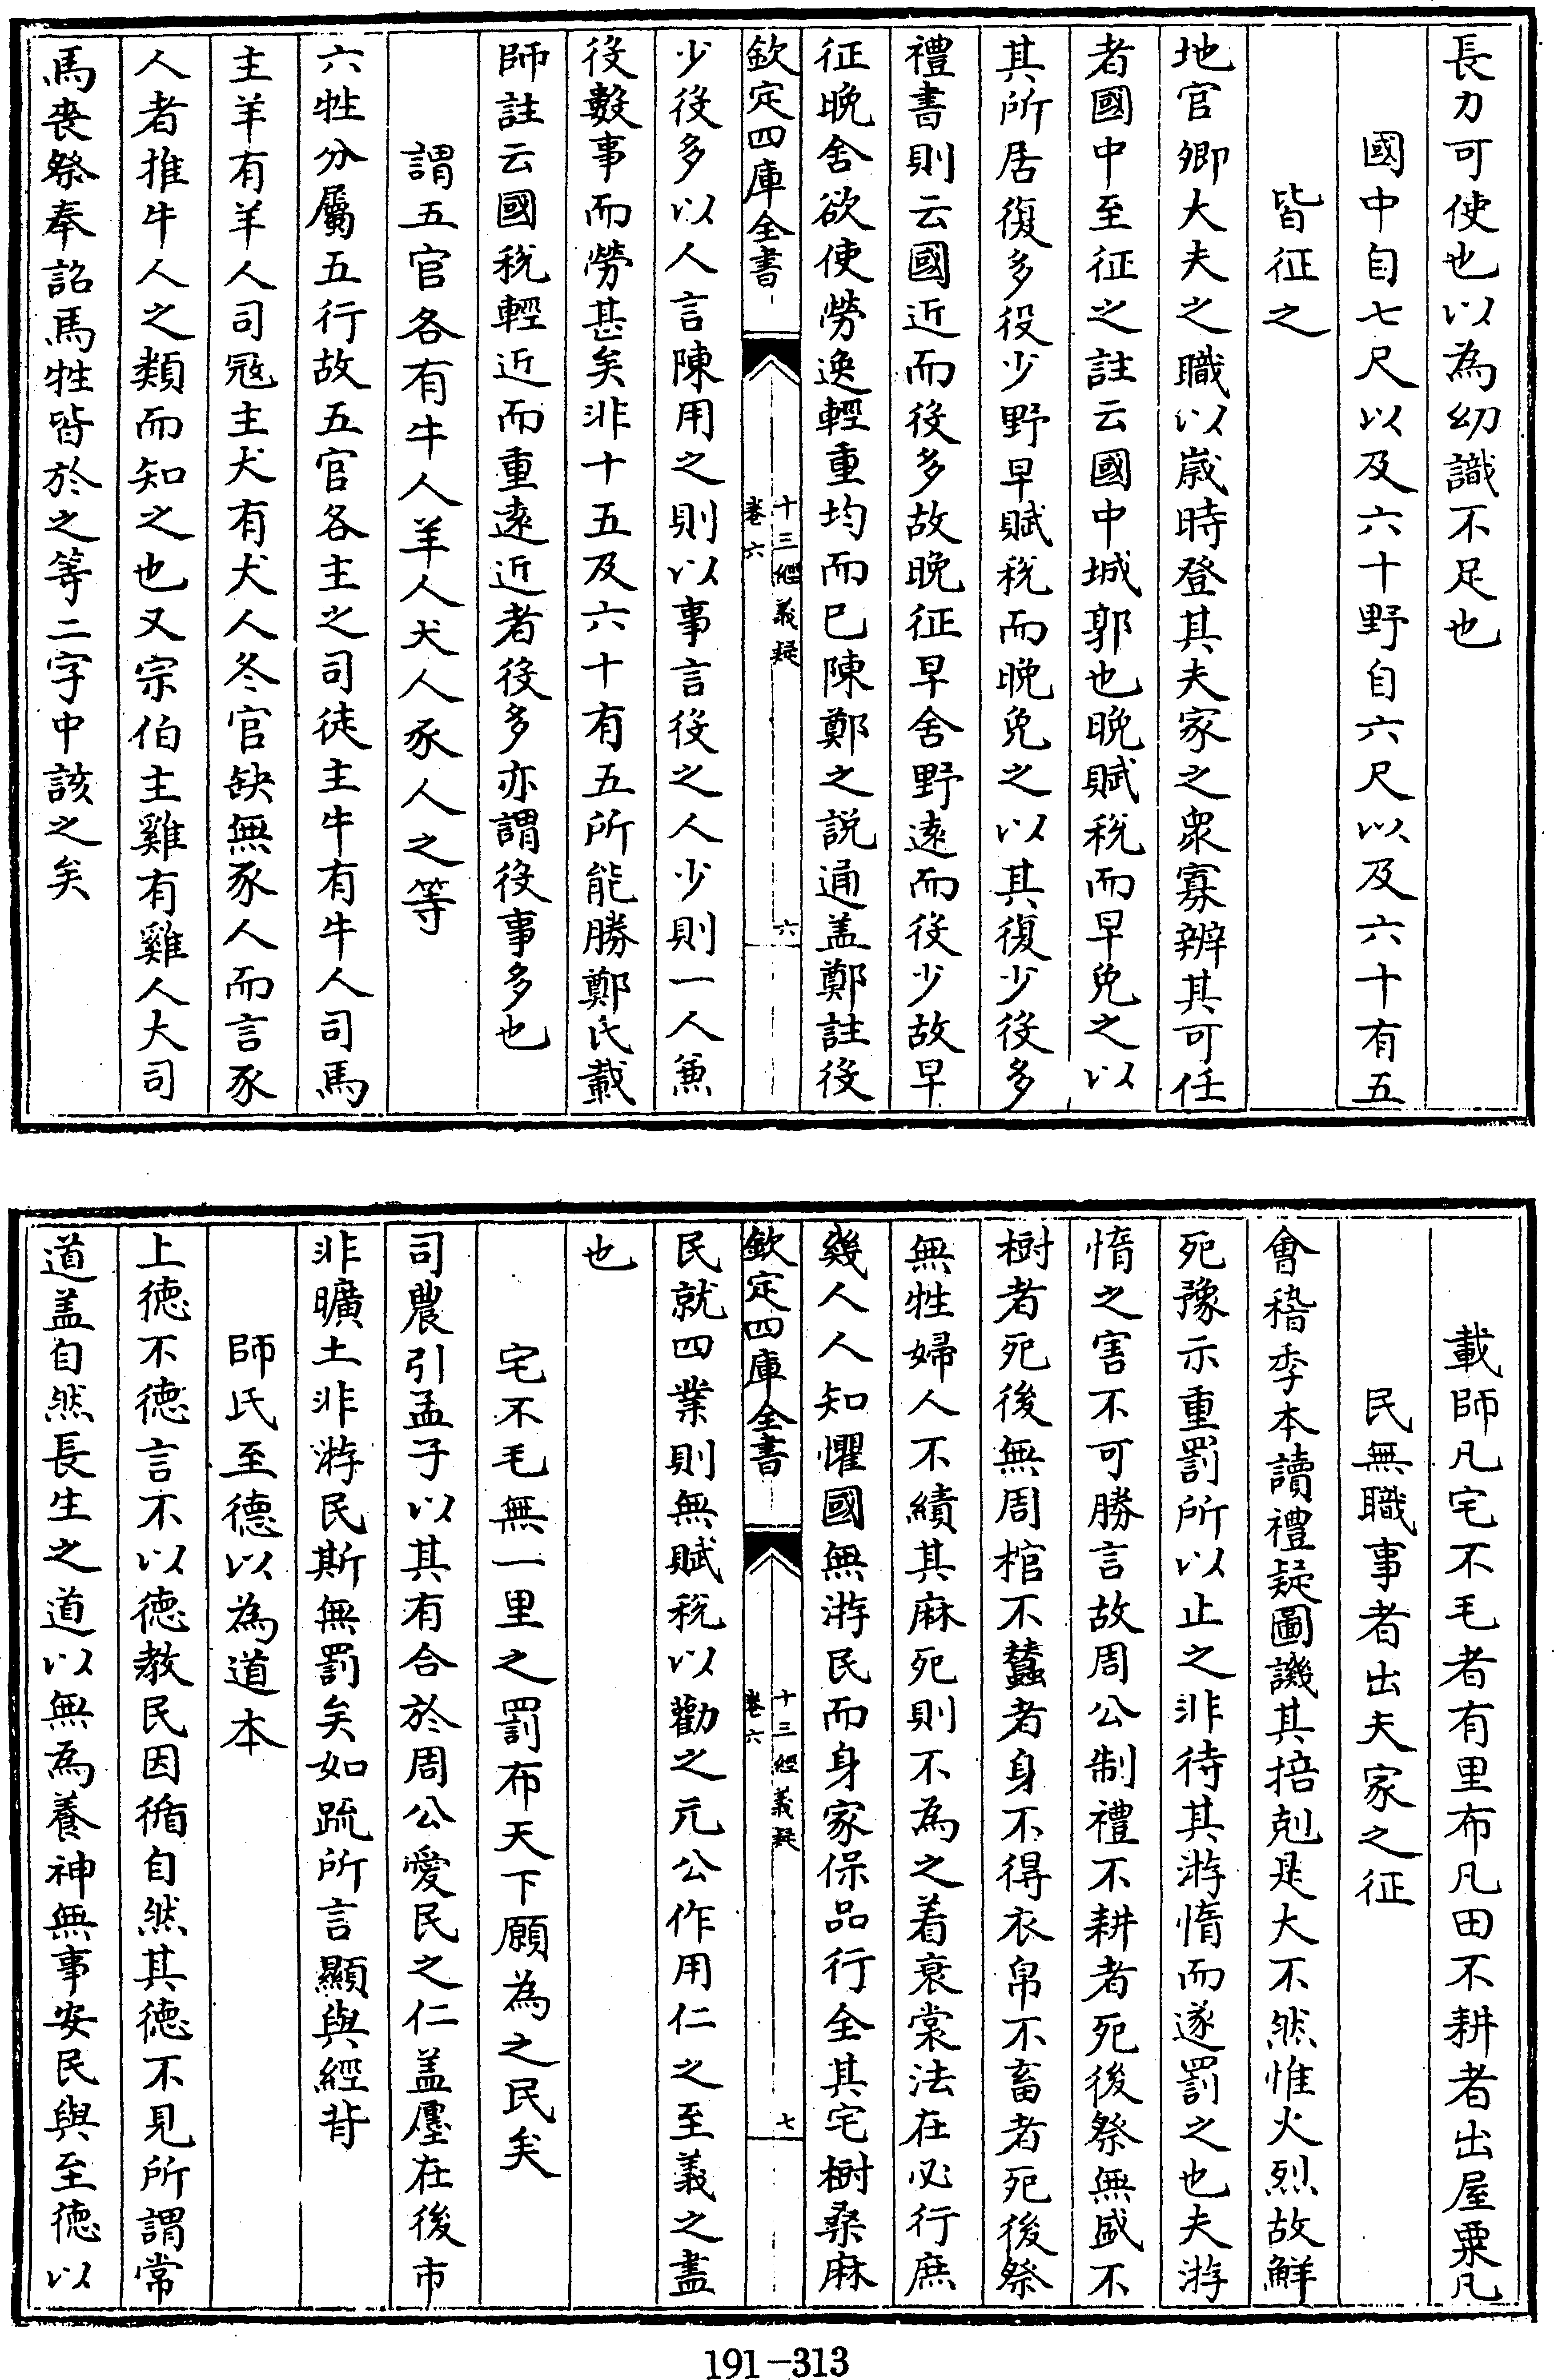 長力可使也以為幼識不足也
國中自七尺以及六十野自六尺以及六十有五
皆征之
地官鄉大夫之職以歲時登其夫家之衆寡辨其可任
者國中至征之註云國中城郭也晚賦稅而早免之以
其所居復多役少野早賦稅而晚免之以其復少役多
禮書則云國近而役多故晚征早舍野遠而役少故早
征晚舍欲使勞逸輕重均而已陳鄭之説通盖鄭註役
欽定四庫全書
十三經義疑
卷六
六
少役多以人言陳用之則以事言役之人少則一人兼
役數事而勞甚矣非十五及六十有五所能勝鄭氏載
師註云國稅輕近而重遠近者役多亦謂役事多也
謂五官各有牛人羊人犬人豕人之等
六牲分屬五行故五官各主之司徒主牛有牛人司馬
主羊有羊人司冦主犬有犬人冬官缺無豕人而言豕
人者推牛人之類而知之也又宗伯主雞有雞人大司
馬喪祭奉詔馬牲皆於之等二字中該之矣
載師凡宅不毛者有里布凡田不耕者出屋粟凡
民無職事者出夫家之征
會稽季本讀禮疑圖譏其掊剋是大不然惟火烈故鮮
死豫示重罰所以止之非待其游惰而遂罰之也夫游
惰之害不可勝言故周公制禮不耕者死後祭無盛不
樹者死後無周棺不蠶者身不得衣帛不畜者死後祭
無牲婦人不績其麻死則不為之着衰裳法在必行庶
幾人人知懼國無游民而身家保品行全其宅樹桑麻
欽定四庫全書
十三經義疑
卷六
七
民就四業則無賦稅以勸之元公作用仁之至義之盡
也
宅不毛無一里之罰布天下願為之民矣
司農引孟子以其有合於周公愛民之仁盖廛在後市
非曠土非游民斯無罰矣如疏所言顯與經背
師氏至德以為道本
上徳不徳言不以徳教民因循自然其徳不見所謂常
道盖自然長生之道以無為養神無事安民與至徳以
191-313